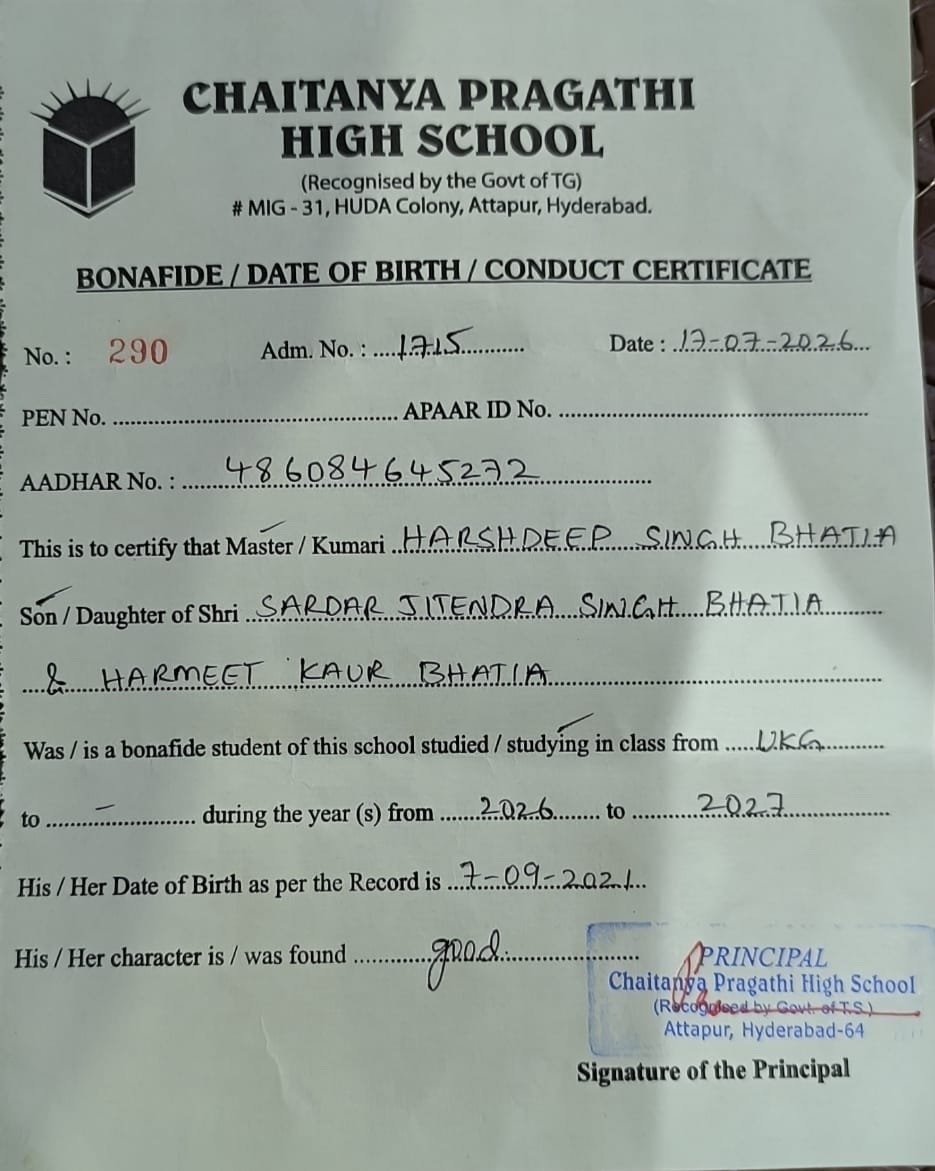 CHAITANYA PRAGATHI
HIGH SCHOOL
(Recognised by the Govt of TG)
# MIG - 31, HUDA Colony, Attapur, Hyderabad.
BONAFIDE / DATE OF BIRTH / CONDUCT CERTIFICATE
No. : 290 Adm. No. : 1715 Date : 17-07-2026
PEN No. APAAR ID No.
AADHAR No. : 486084645272
This is to certify that Master / Kumari HARSHDEEP SINGH BHATIA
Son / Daughter of Shri SARDAR JITENDRA SINGH BHATIA
& HARMEET KAUR BHATIA
Was / is a bonafide student of this school studied / studying in class from UKG
to – during the year (s) from 2026 to 2027
His / Her Date of Birth as per the Record is 7-09-2021
His / Her character is / was found good.
PRINCIPAL
Chaitanya Pragathi High School
(Recognised by Govt. of T.S.)
Attapur, Hyderabad-64
Signature of the Principal